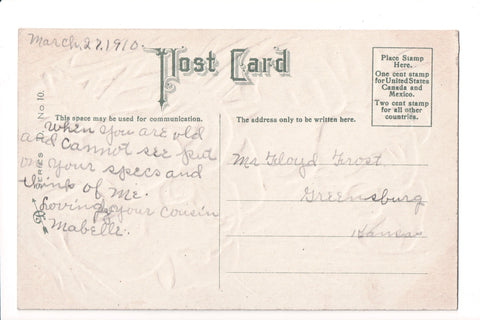 March, 27, 1910.
Post Card
Place Stamp
Here.
One cent stamp
for United States
Canada and
Mexico.
Two cent stamp
for all other
countries.
SERIES No 10.
This space may be used for communication.
The address only to be written here.
When you are old
and cannot see put
on your specs and
think of Me.
Loving your Cousin
Mabelle.
Mr Floyd Frost
Greensburg
Kansas